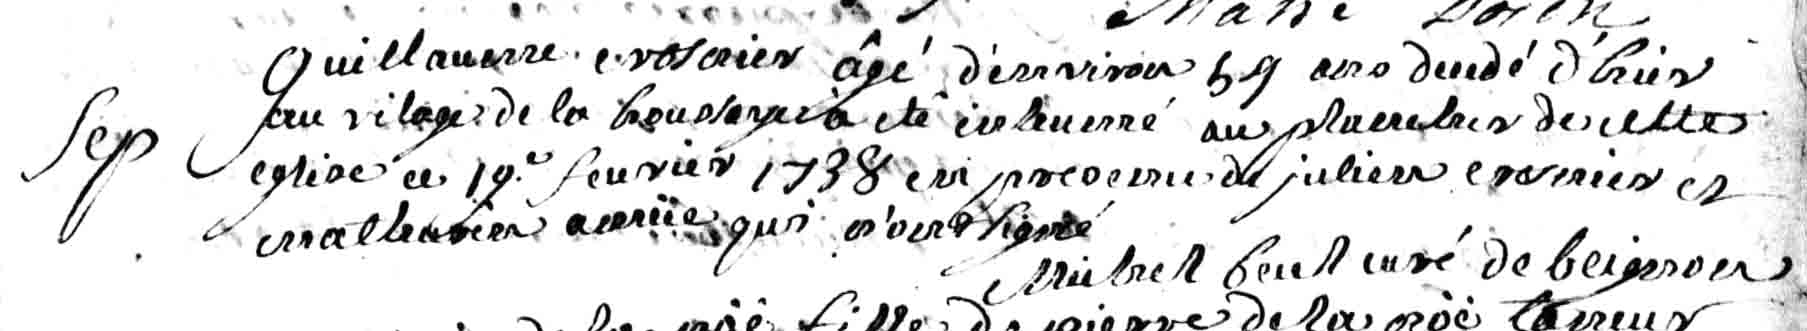 Guillaume crosnier âgé d'environ 59 ans decedé d'hier
Sep au vilage de la houssaye a eté inhumé au placitre de cette
eglise ce 19.e feuvrier 1738 en presence de julien crosnier et
mathurin amice qui n'ont signé
Michel curé de beignon
fille de pierre de la noë